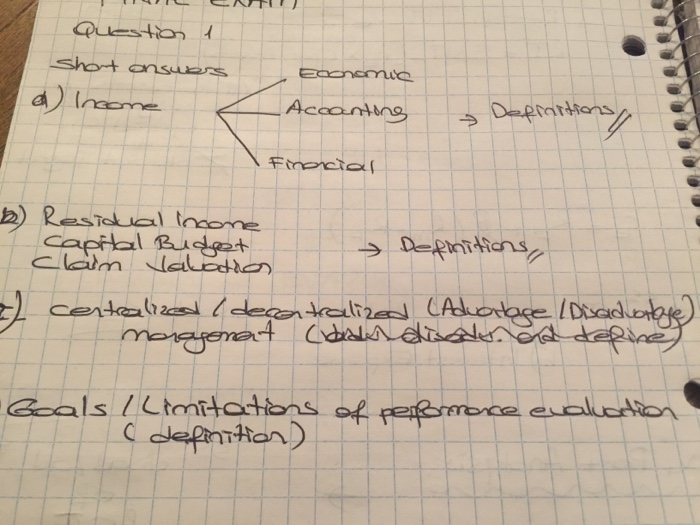 FINAL EXAM
Question 1
short answers
a) Income
Economic
Accounting → Definitions //
Financial
b) Residual Income
Capital Budget → Definitions //
Claim Valuation
c) centralized / decentralized (Advantage / Disadvantage)
management ( and define)
Goals / Limitations of performance evaluation
(definition)